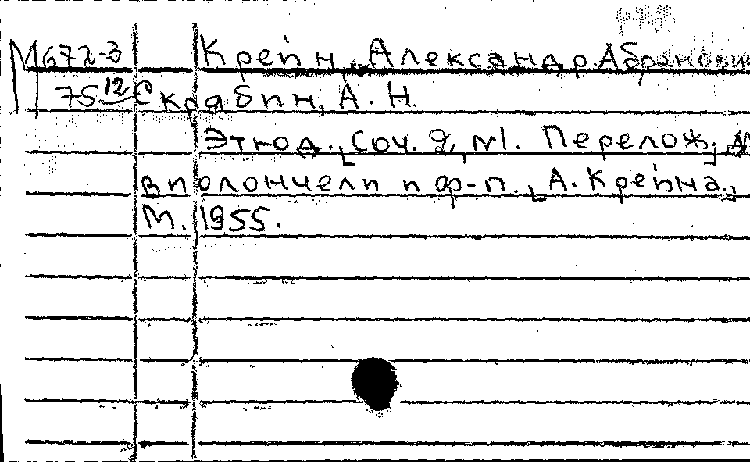 М672-3 Крейн, Александр Абрамович
75 12 Скрябин, А. Н.
Этюд. Соч. 8, №1. Перелож.
виолончели и ф-п. А. Крейна.
М. 1955.